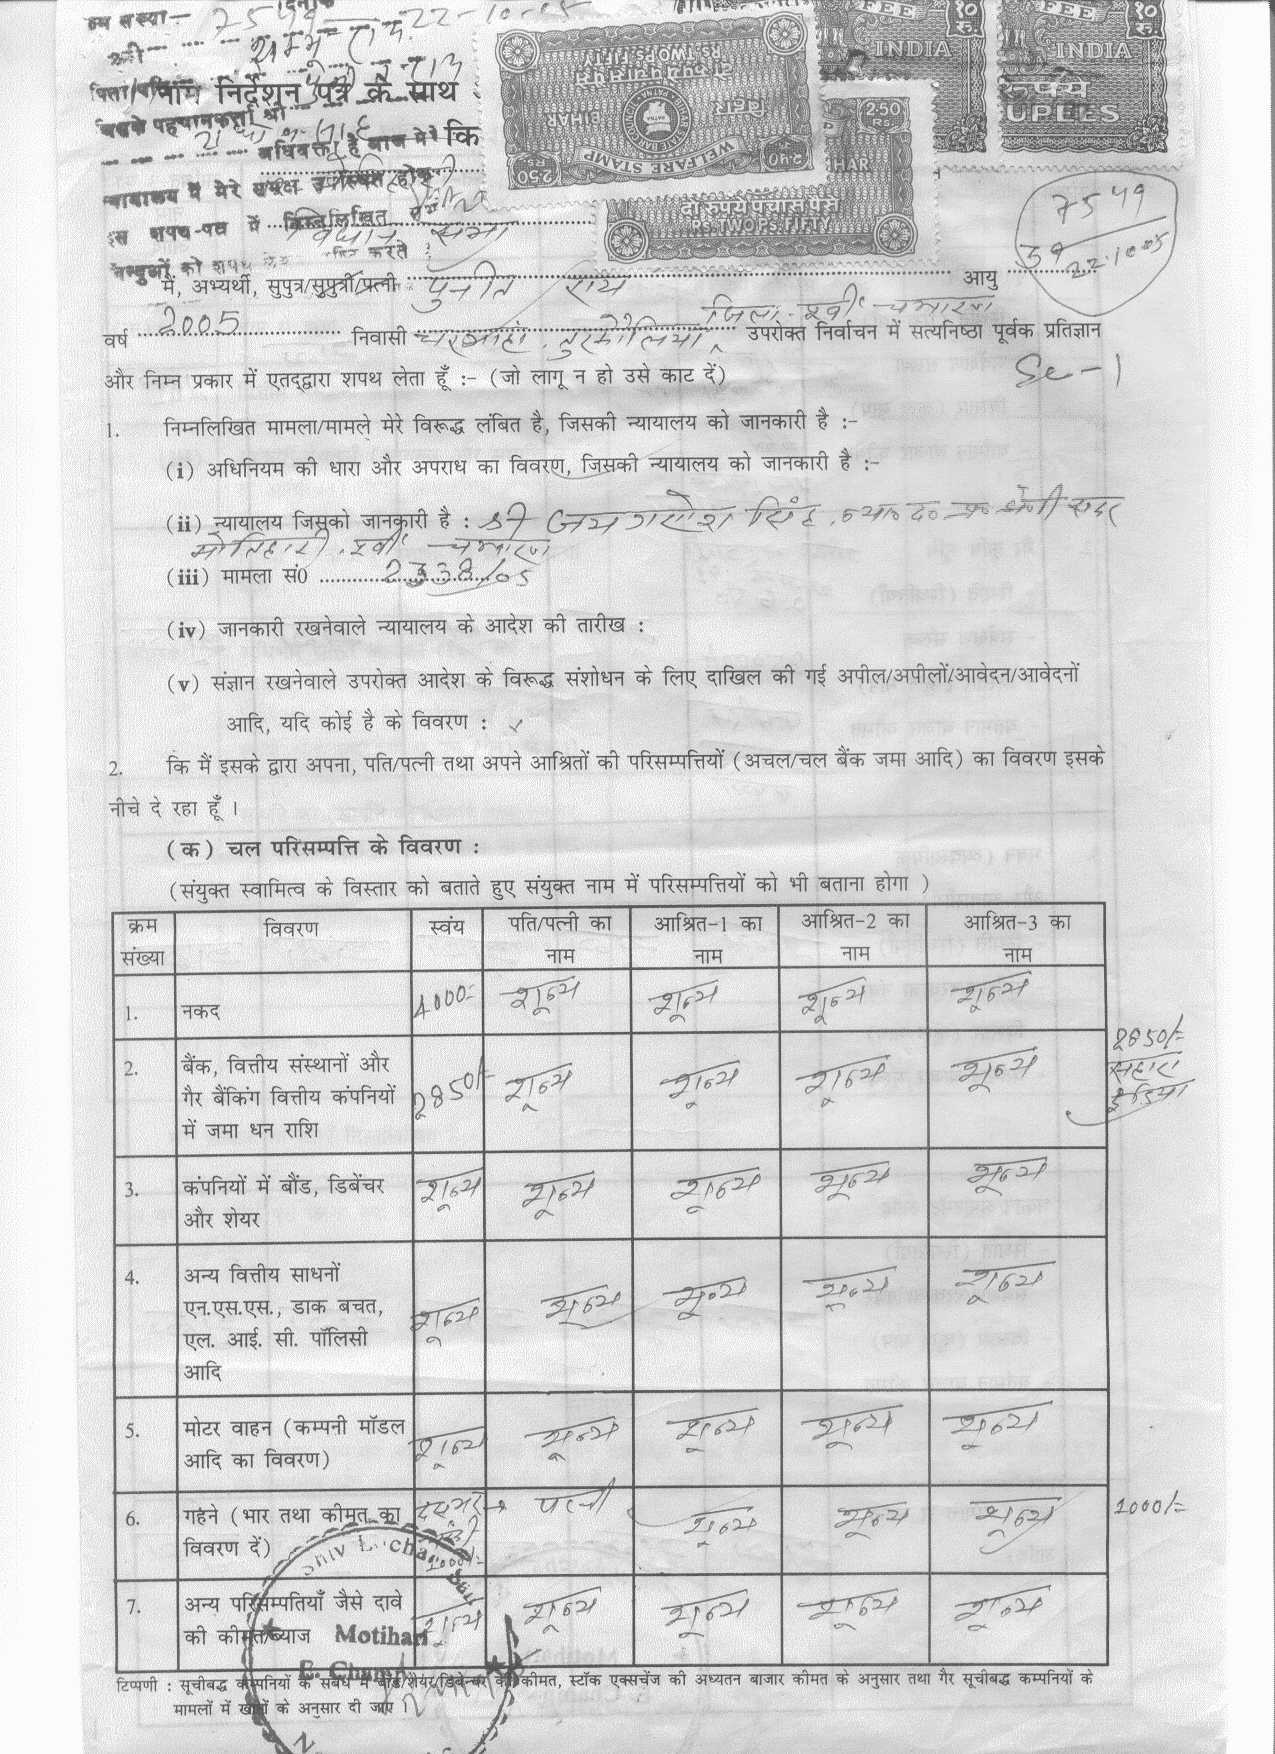 7549 22-10-05
श्री शम्भू राय
नाम निर्देशन पत्र के साथ
अधिवक्ता है आज मेरे कि
न्यायालय में मेरे समक्ष उपस्थित होकर
इस शपथ-पत्र में निम्नलिखित
विधान सभा
करते
FEE १० रु. INDIA
FEE १० रु. INDIA रूपये RUPEES
RS. TWO PS. FIFTY
दो रूपये पचास पैसे
BIHAR बिहार
WELFARE STAMP
2.50
दो रूपये पचास पैसे
RS. TWO PS. FIFTY
7549
22.10.05
मैं, अभ्यर्थी, सुपुत्र/सुपुत्री/पत्नी पुनीत राय आयु
वर्ष 2005 निवासी तुरकौलिया, जिला-पूर्वी चम्पारण उपरोक्त निर्वाचन में सत्यनिष्ठा पूर्वक प्रतिज्ञान
और निम्न प्रकार में एतद्द्वारा शपथ लेता हूँ :- (जो लागू न हो उसे काट दें)
1. निम्नलिखित मामला/मामले मेरे विरूद्ध लंबित है, जिसकी न्यायालय को जानकारी है :-
(i) अधिनियम की धारा और अपराध का विवरण, जिसकी न्यायालय को जानकारी है :-
(ii) न्यायालय जिसको जानकारी है : श्री जय गणेश सिंह, न्या० द० प्र० श्रेणी सदर
मोतिहारी, पूर्वी चम्पारण
(iii) मामला सं0 2338/05
(iv) जानकारी रखनेवाले न्यायालय के आदेश की तारीख :
(v) संज्ञान रखनेवाले उपरोक्त आदेश के विरूद्ध संशोधन के लिए दाखिल की गई अपील/अपीलों/आवेदन/आवेदनों
आदि, यदि कोई है के विवरण : x
2. कि मैं इसके द्वारा अपना, पति/पत्नी तथा अपने आश्रितों की परिसम्पत्तियों (अचल/चल बैंक जमा आदि) का विवरण इसके
नीचे दे रहा हूँ ।
(क) चल परिसम्पत्ति के विवरण :
(संयुक्त स्वामित्व के विस्तार को बताते हुए संयुक्त नाम में परिसम्पत्तियों को भी बताना होगा )
क्रम संख्या विवरण स्वंय पति/पत्नी का नाम आश्रित-1 का नाम आश्रित-2 का नाम आश्रित-3 का नाम
1. नकद 4000/- शून्य शून्य शून्य शून्य
2. बैंक, वित्तीय संस्थानों और 2850/- शून्य शून्य शून्य शून्य 2850/-
गैर बैंकिंग वित्तीय कंपनियों सहारा
में जमा धन राशि इंडिया
3. कंपनियों में बौंड, डिबेंचर शून्य शून्य शून्य शून्य शून्य
और शेयर
4. अन्य वित्तीय साधनों शून्य शून्य शून्य शून्य शून्य
एन.एस.एस., डाक बचत,
एल. आई. सी. पॉलिसी
आदि
5. मोटर वाहन (कम्पनी मॉडल शून्य शून्य शून्य शून्य शून्य
आदि का विवरण)
6. गहने (भार तथा कीमत का पत्नी शून्य शून्य शून्य 1000/-
विवरण दें) 1000/-
7. अन्य परिसम्पतियाँ जैसे दावे शून्य शून्य शून्य शून्य शून्य
की कीमत/ब्याज
Motihari
E. Champ
टिप्पणी : सूचीबद्ध कंपनियों के संबंध में बौंड/शेयर/डिबेन्चर की कीमत, स्टॉक एक्सचेंज की अध्यतन बाजार कीमत के अनुसार तथा गैर सूचीबद्ध कम्पनियों के
मामलों में खातों के अनुसार दी जाए ।